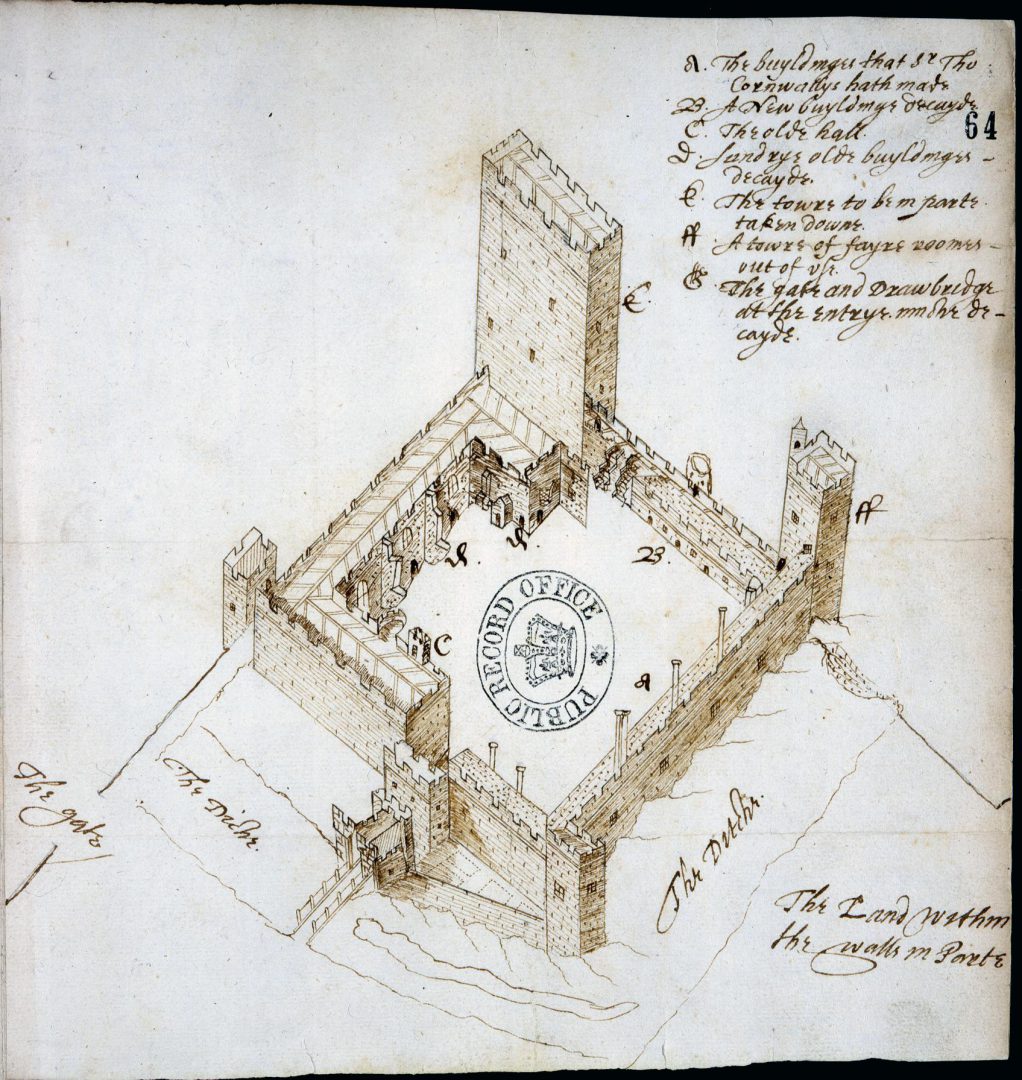 A. The buyldinges that Sr Tho
Cornwallys hath made
B. A New buyldinge decayde
C. The olde hall.
64
D. Sundrye olde buyldinges -
decayde.
E. The towre to be in parte
taken downe.
ff A towre of fayre roomes -
out of vse.
G. The gate and Drawbridge
at the entrye muche de-
cayde.
E.
ff
D.
D.
B.
C
A
PUBLIC RECORD OFFICE
The gate
The Diche.
The Ditche.
The Land within
the walls in Parte